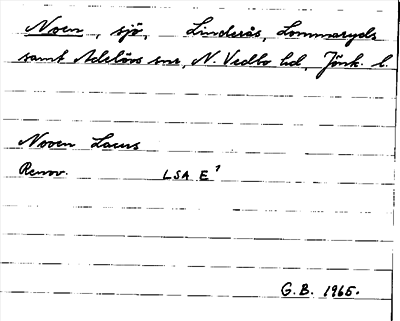 Noen, sjö, Linderås, Lommaryds
samt Adelövs snr, N. Vedbo hd, Jönk. l.
Nooen Lacus
Renov. LSA E¹
G.B. 1965.